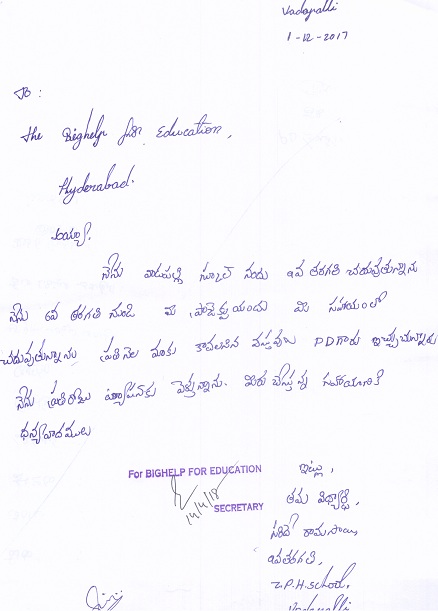 Vadapalli
1-12-2017
To:
The Bighelp for Education,
Hyderabad.
అయ్యా,
నేను వాడపల్లి స్కూల్ నందు 10వ తరగతి చదువుతున్నాను
నేను 6వ తరగతి నుండి మీ ప్రాజెక్టుయందు మీ సహాయంలో
చదువుతున్నాను ప్రతినెల మాకు కావలసిన వస్తువులు PDగారు ఇచ్చుచున్నారు
నేను ప్రతిరోజు ట్యూషన్‌కు వెళ్తున్నాను. మీరు చేస్తున్న సహాయానికి
ధన్యవాదములు
For BIGHELP FOR EDUCATION
14/4/18
SECRETARY
ఇట్లు,
తమ విద్యార్థి,
రామసాయి,
తరగతి,
Z.P.H.School,
Vadapalli